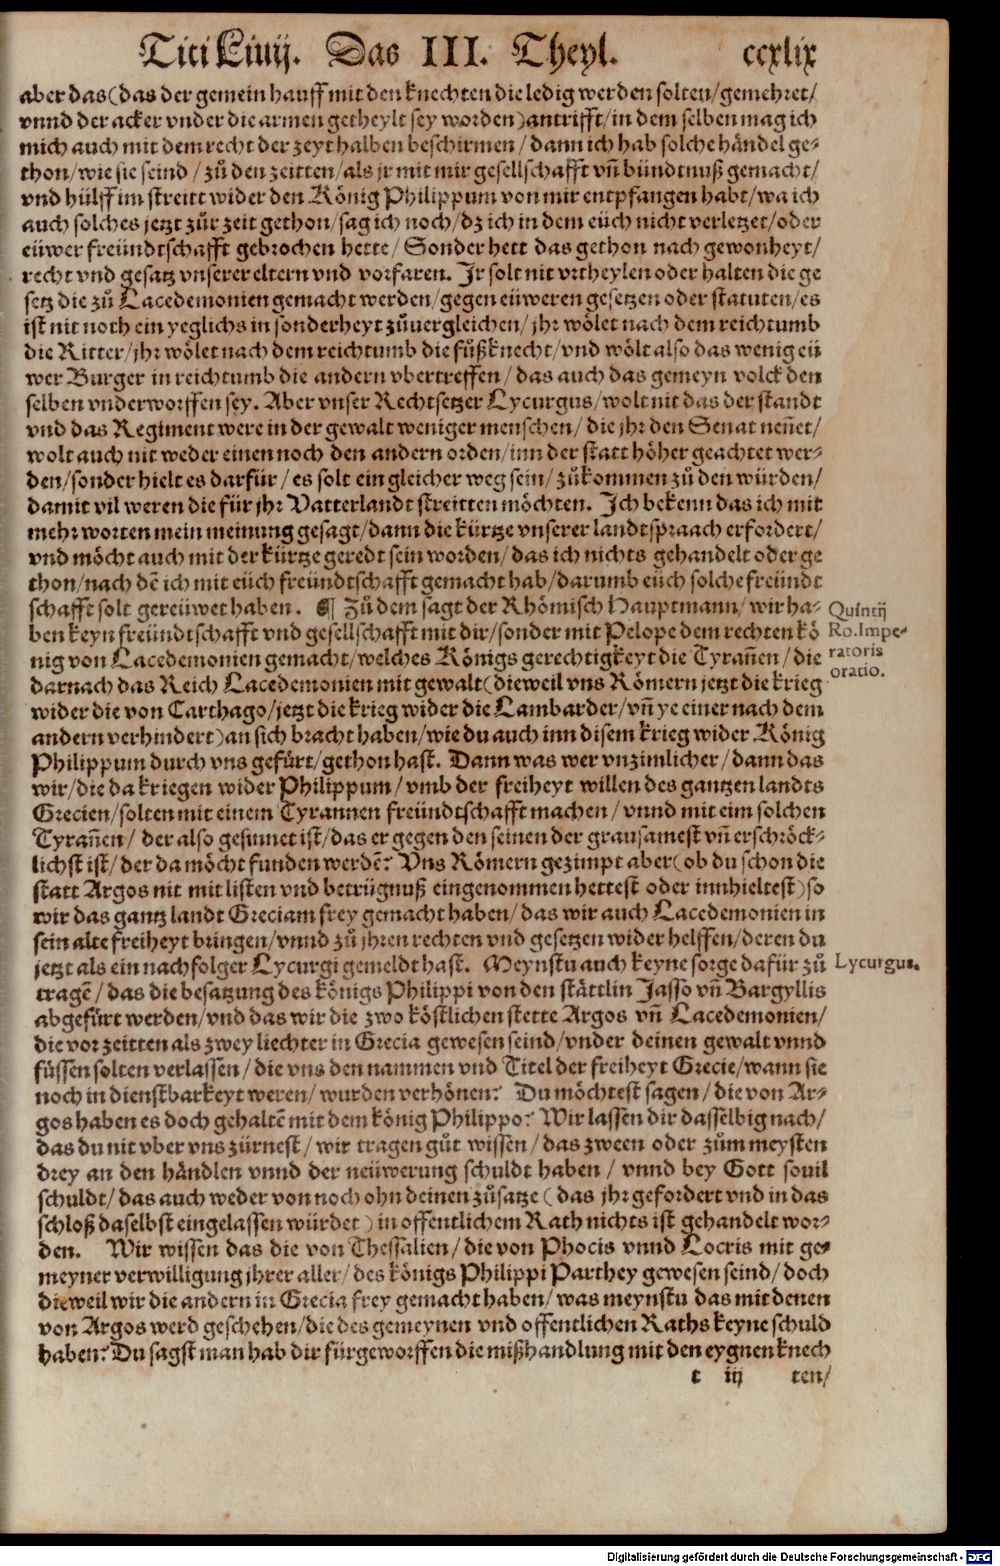 Titi Liuij. Das III. Theyl. ccxlix
aber das (das der gemein hauff mit den knechten die ledig werden solten/gemehret/
vnnd der acker vnder die armen getheylt sey worden) antrifft/in dem selben mag ich
mich auch mit dem recht der zeyt halben beschirmen/dann ich hab solche händel ge-
thon/wie sie seind/zů den zeitten/als jr mit mir gesellschafft vñ bündtnuß gemacht/
vnd hülff im streitt wider den König Philippum von mir entpfangen habt/wa ich
auch solches jetzt zůr zeit gethon/sag ich noch/dz ich in dem eüch nicht verletzet/oder
eüwer freündtschafft gebrochen hette/Sonder hett das gethon nach gewonheyt/
recht vnd gesatz vnserer eltern vnd vorfaren. Jr solt nit vrtheylen oder halten die ge
setz die zů Lacedemonien gemacht werden/gegen eüweren gesetzen oder statuten/es
ist nit noth ein yeglichs in sonderheyt zůuergleichen/jhr wölet nach dem reichtumb
die Ritter/jhr wölet nach dem reichtumb die fůßknecht/vnd wölt also das wenig eü
wer Burger in reichtumb die andern vbertreffen/das auch das gemeyn volck den
selben vnderworffen sey. Aber vnser Rechtsetzer Lycurgus/wolt nit das der standt
vnd das Regiment were in der gewalt weniger menschen/die jhr den Senat neñet/
wolt auch nit weder einen noch den andern orden/inn der statt höher geachtet wer-
den/sonder hielt es darfür/es solt ein gleicher weg sein/zůkommen zů den würden/
damit vil weren die für jhr Vatterlandt streitten möchten. Ich bekenn das ich mit
mehr worten mein meinung gesagt/dann die kürtze vnserer landtspraach erfordert/
vnd möcht auch mit der kürtze geredt sein worden/das ich nichts gehandelt oder ge
thon/nach dē ich mit eüch freündtschafft gemacht hab/darumb eüch solche freündt
schafft solt gereüwet haben. ¶ Zů dem sagt der Rhömisch Hauptmann/wir ha-
ben keyn freündtschafft vnd gesellschafft mit dir/sonder mit Pelope dem rechten kö
nig von Lacedemonien gemacht/welches Königs gerechtigkeyt die Tyrañen/die
darnach das Reich Lacedemonien mit gewalt (dieweil vns Römern jetzt die krieg
wider die von Carthago/jetzt die krieg wider die Lambarder/vñ ye einer nach dem
andern verhindert) an sich bracht haben/wie du auch inn disem krieg wider König
Philippum durch vns gefürt/gethon hast. Dann was wer vnzimlicher/dann das
wir/die da kriegen wider Philippum/vmb der freiheyt willen des gantzen landts
Grecien/solten mit einem Tyrannen freündtschafft machen/vnnd mit eim solchen
Tyrañen/der also gesinnet ist/das er gegen den seinen der grausamest vñ erschröck-
lichst ist/der da möcht funden werdē? Vns Römern gezimpt aber (ob du schon die
statt Argos nit mit listen vnd betrügnuß eingenommen hettest oder innhieltest) so
wir das gantz landt Greciam frey gemacht haben/das wir auch Lacedemonien in
sein alte freiheyt bringen/vnnd zů jhren rechten vnd gesetzen wider helffen/deren du
jetzt als ein nachfolger Lycurgi gemeldt hast. Meynstu auch keyne sorge dafür zů
tragē/das die besatzung des königs Philippi von den stättlin Jasso vñ Bargyllis
abgefürt werden/vnd das wir die zwo köstlichen stette Argos vñ Lacedemonien/
die vor zeitten als zwey liechter in Grecia gewesen seind/vnder deinen gewalt vnnd
füssen solten verlassen/die vns den nammen vnd Titel der freiheyt Grecie/wann sie
noch in dienstbarkeyt weren/wurden verhönen? Du möchtest sagen/die von Ar-
gos haben es doch gehaltē mit dem könig Philippo? Wir lassen dir dasselbig nach/
das du nit vber vns zürnest/wir tragen gůt wissen/das zween oder zům meysten
drey an den händlen vnnd der neüwerung schuldt haben/vnnd bey Gott souil
schuldt/das auch weder von noch ohn deinen zůsatze (das jhr gefordert vnd in das
schloß daselbst eingelassen würdet) in offentlichem Rath nichts ist gehandelt wor-
den. Wir wissen das die von Thessalien/die von Phocis vnnd Locris mit ge-
meyner verwilligung jhrer aller/des königs Philippi Parthey gewesen seind/doch
dieweil wir die andern in Grecia frey gemacht haben/was meynstu das mit denen
von Argos werd geschehen/die des gemeynen vnd offentlichen Raths keyne schuld
haben? Du sagst man hab dir fürgeworffen die mißhandlung mit den eygnen knech
t iij ten/
Quintij
Ro. Impe-
ratoris
oratio.
Lycurgus.
Digitalisierung gefördert durch die Deutsche Forschungsgemeinschaft - DFG